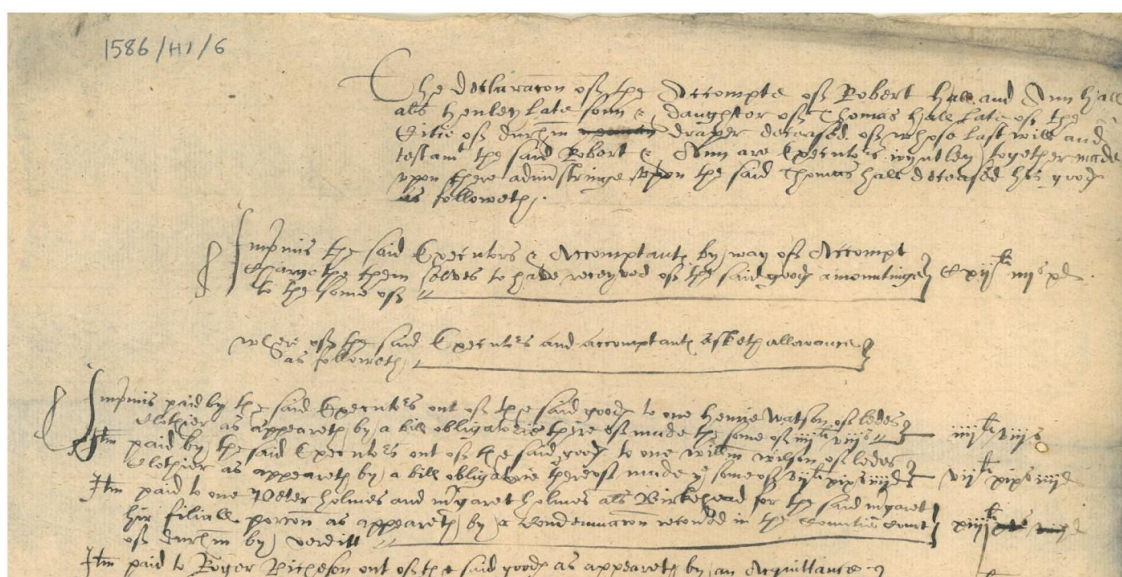 1586/H1/6
The declaracon of the Accompte of Robert Hall and Ann Hall
als Henley late sonn & daughter of Thomas Hall late of the
Citie of Durhm draper deceased of whose last will and
testamt the said Robert & Ann are Executors together made
upon there adminstringe upon the said Thomas Hall deceased his goods
as followeth.
Inpmis the said Executors & Accomptants by way of Accompt
chargethe them selves to have receyved of the said goods amountinge
to the some of cxijli iijs xd
wher of the said Executors and accomptants asketh allowance
as followeth
Inpmis paid by the said Executors out of the said goods to one Henrie Watson of ledes
clothier as appeareth by a bill obligatorie there of made the some of iiijli viijs iiijli viijs
Itm paid by the said Executors out of the said goods to one Willm Wilson of ledes
clothier as appeareth by a bill obligatorie thereof made ye some of vijli xixs iiijd vijli xixs iiijd
Itm paid to one Peter Holmes and Mgaret Holmes als Birkehead for the said mgaret
hir filiall porcon as appeareth by a condemnacon recorded in the Countie Court
of Durhm by verditt xiijli
Itm paid to Roger Richeson out of the said goods as appeareth by an Acquittance